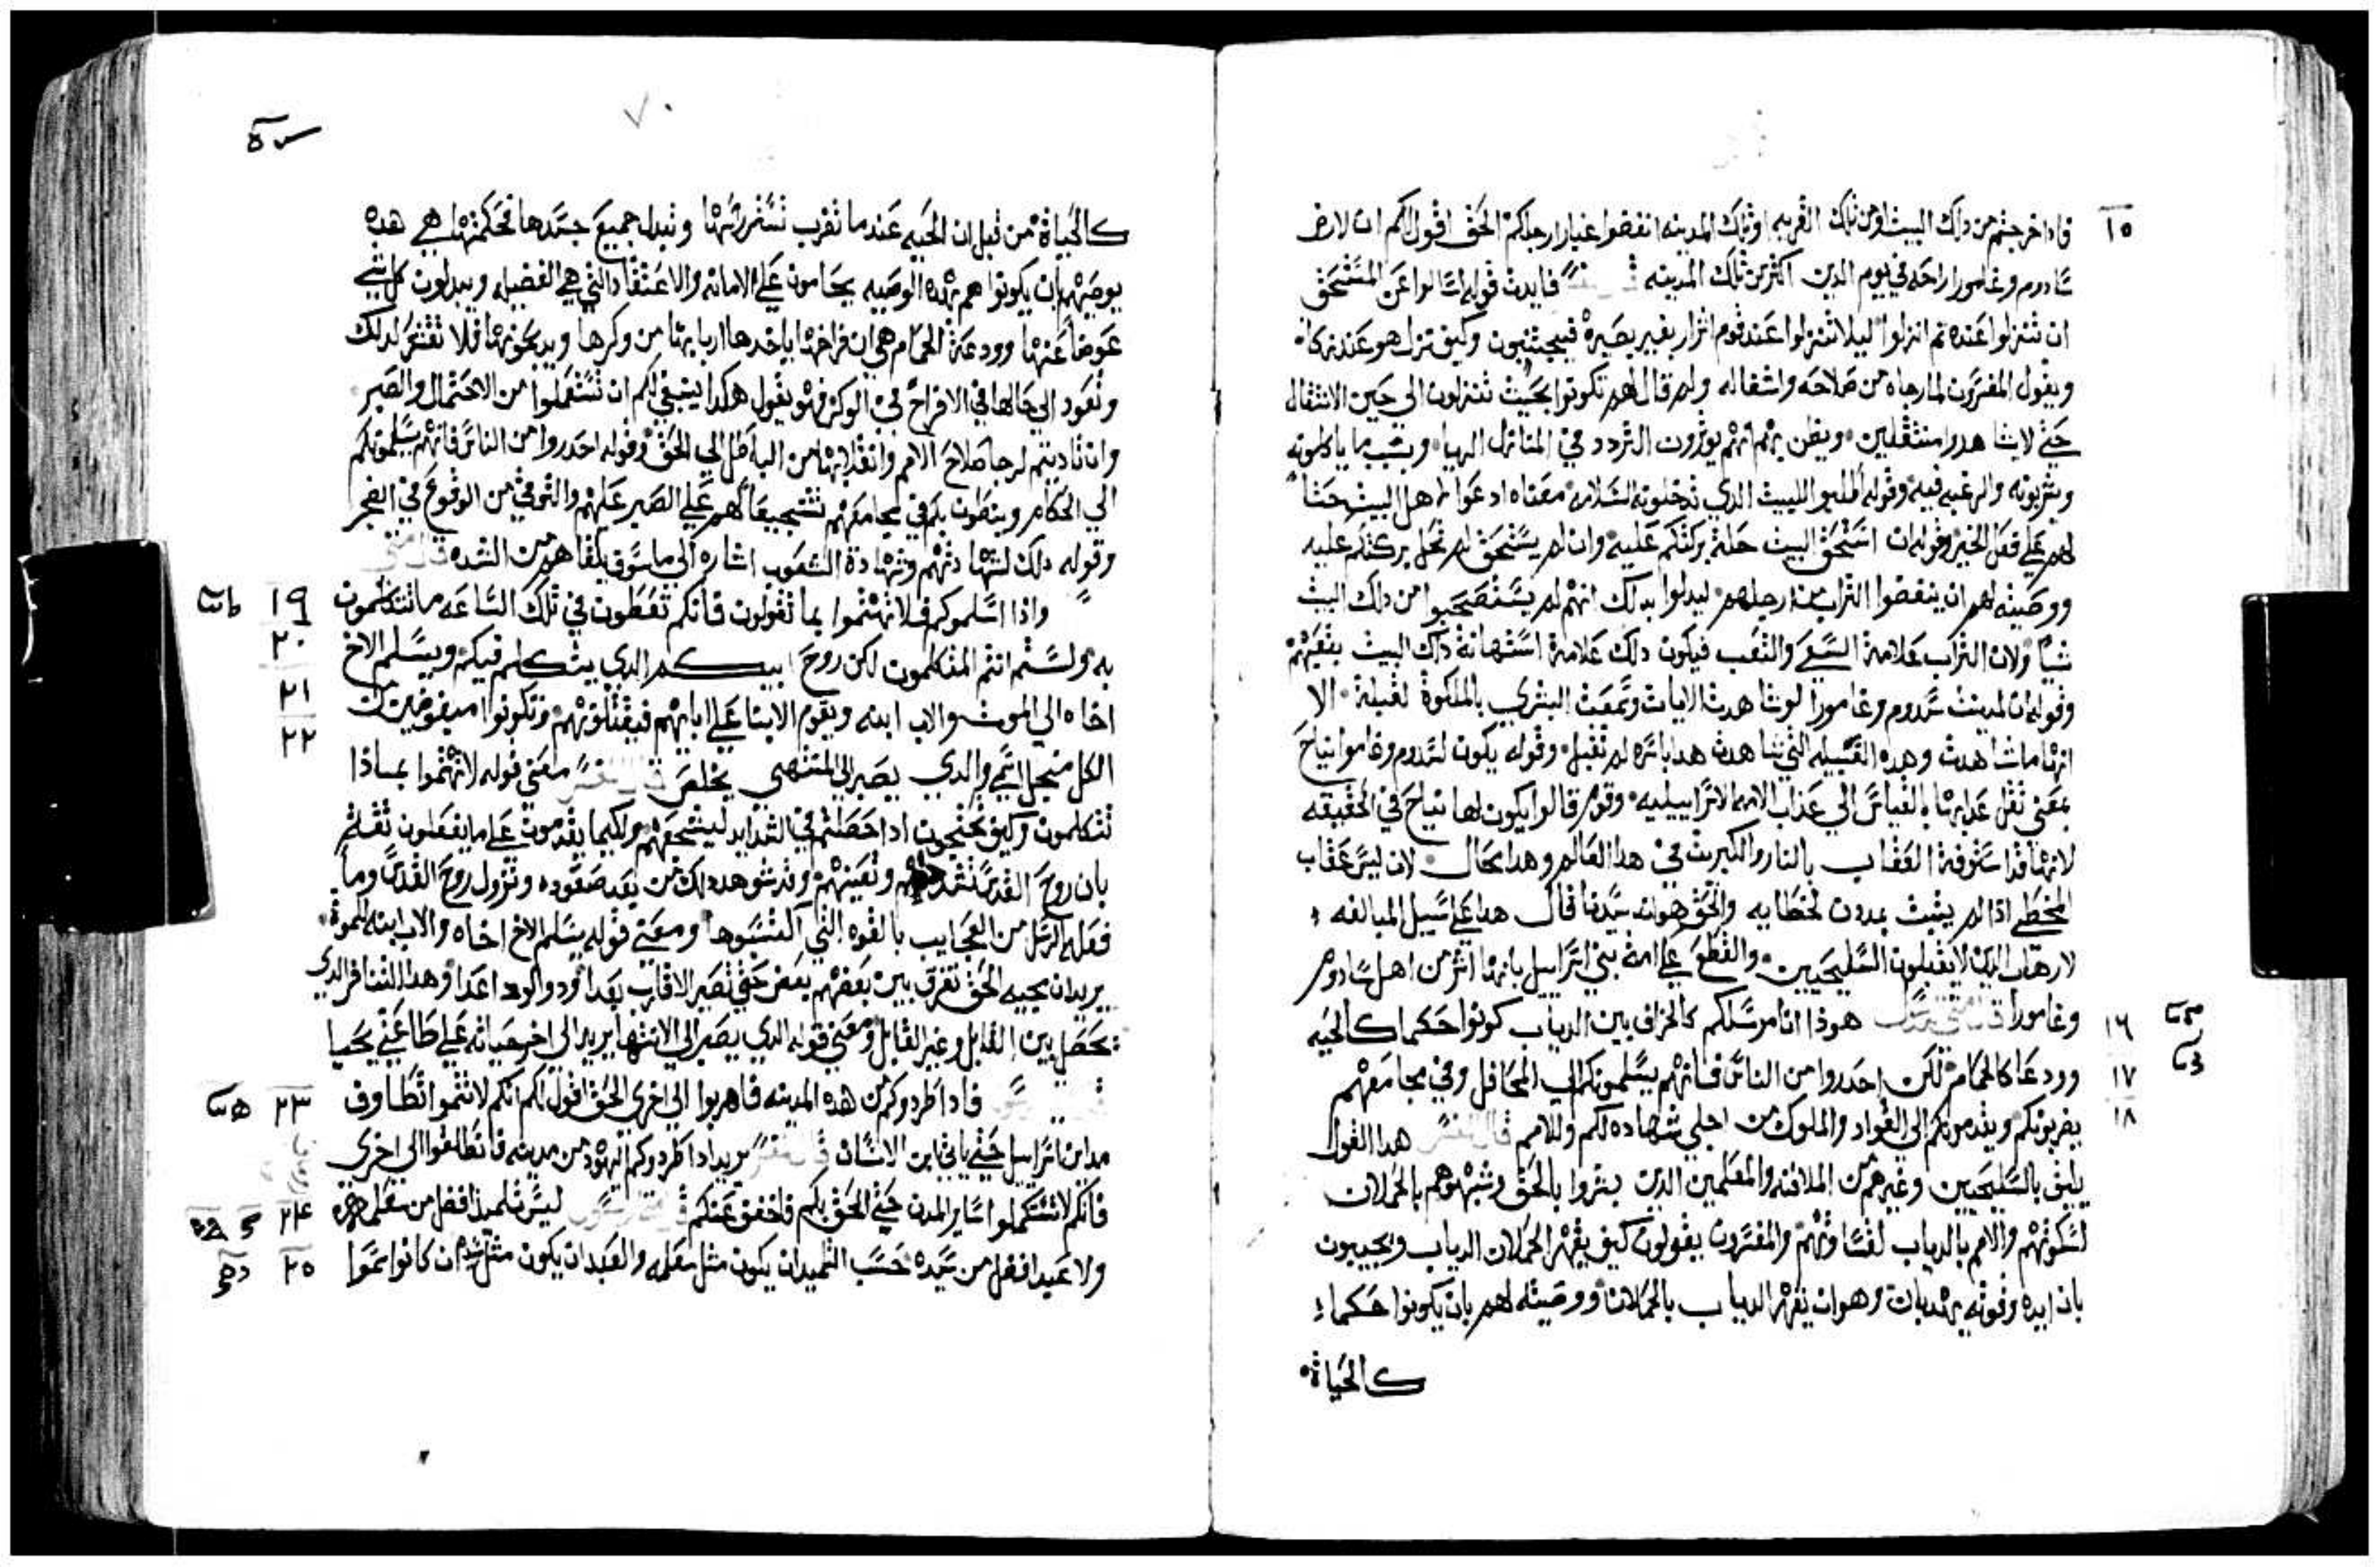 ١٥ فاذا خرجتم من دلك البيت او من تلك القريه او تلك المدينه انفضوا غبار ارجلكم الحق اقول لكم ان لارض
سادوم وغامورا راحه في يوم الدين اكثر من تلك المدينه فايدت قوله اسالوا عن المستحق
ان تنزلوا عنده تم انزلوا ليلا تنزلوا عند قوم اشرار بغير بصيرة وكيف نزل هو عند زكا
ويقول المفسرون لما رجاه من صلاحه وانتقاله ولم قال لهم تكونوا بحيث تنزلون الي حين الانتقال
حتي لا يشاهدوا منتقلين ويظن بهم انهم يوثرون التردد في المنازل البهيا وبسبب ما ياكلونه
ويشربونه والرغبه فيه وقوله اطلبوا للبيت الدي تدخلونه السلامه معناه ادعوا لاهل البيت حتا
لهم علي فعل الخير وقوله ان استحق البيت حلة بركتكم عليه وان لم يستحق لم تحل بركتكم عليه
ووصيته لهم ان ينفضوا التراب من ارجلهم ليدلوا بدلك انهم لم يستصحبوا من دلك البيت
شيا ولان التراب علامة السعي والتعب فيكون دلك علامة استهانة داك البيت بتعبهم
وقوله ان لمدينت سدوم وغامورا لو شاهدت الايات وسمعت البشري بالملكوة لقبلة الا
انها ما شاهدت وهده القبيله التي شاهدت هدا باسره لم تقبل وقوله يكون لسدوم وغامورا نياح
بمعني تقل عدابها بالقياس الي عداب الامه الاسراييليه وقوم قالوا يكون لها نياح في الحقيقه
لانها قد استوفة العقاب بالنار والكبريت في هدا العالم وهدا محال لان ليس عقاب
المخطي اذا لم يثبت بمدون لخطايه والحق هو انه سيدنا قال هدا علي سبيل المبالغه
لارهاب الدين لا يقبلون السليحيين والقطع علي امة بني اسراييل بانها اشر من اهل سادوم
١٦ وغامورا قال متي هوذا انا مرسلكم كالخراف بين الدياب كونوا حكما كالحيه
١٧ وودعا كالحمام لكن احدروا من الناس فانهم يسلمونكم الي المحافل وفي مجامعهم
١٨ يضربونكم ويقدمونكم الي القواد والملوك من اجلي شهاده لكم وللامم قال المفسر هدا القول
يليق بالسليحيين وغيرهم من الملافنه والمعلمين الدين بشروا بالحق وشبهوهم بالحملان
لسكونهم والامم بالدياب لقساوتهم والمفسرون يقولون كيف يقهر الحملان الدياب ويجيبون
بان ايده وقوته بهدا بانت وهو ان تقهر الدياب بالحملان ووصيته لهم بان يكونوا حكماء
كالحياة
٧٠
كالحياة من قبل ان الحيه عندما تضرب تستر راسها وتبدل جميع جسدها فحكمتها هي هده
يوصيهم بان يكونوا هم بهده الوصيه يحامون علي الامانه والاعتقاد التي هي الفضيله ويبدلون كل شي
عوضا عنها وودعة الحمام هي ان فراخها ياخدها اربابها من وكرها ويدبحونها فلا تتغير لدلك
وتعود الي حالها في الافراح في الوكر فهو يقول هكدا ينبغي لكم ان تستعملوا من الاحتمال والصبر
وان تاديتم لرجا صلاح الامم وانقلابها من الباطل الي الحق وقوله احدروا من الناس فانهم يسلمونكم
الي الحكام وينطون بكم في مجامعهم تشجيعا لهم علي الصبر عليهم والتوقي من الوقوع في الضجر
وقوله دلك لشهادتهم وشهادة الشعوب اشاره الي ما سوف يلقاهم من الشده قال متي
١٩ واذا اسلموكم فلا تهتموا بما تقولون فانكم تعطون في تلك الساعه ما تتكلمون
٢٠ به ولستم انتم المتكلمون لكن روح ابيكم الدي يتكلم فيكم ويسلم الاخ
٢١ اخاه الي الموت والاب ابنه ويقوم الابنا علي ابايهم فيقتلونهم وتكونوا مبغوضين من
٢٢ الكل من اجل اسمي والدي يصبر الي المنتهي يخلص قال المفسر معني قوله لا تهتموا بماذا
تتكلمون وكيف تحتجون ادا حصلتم في الشدايد ليشجعهم ولكيما يقدمون علي ما يفعلون تقلة
بان روح القدس تشد وتعينهم وقد شوهد دلك من بعد صعوده ونزول روح القدس وما
فعله الرسل من العجايب بالقوه التي التبسوها ومعني قوله يسلم الاخ اخاه والاب ابنه للموت
يريد ان محبه الحق تفرق بين بعضهم بعض حتي تصير الاقارب بعدا وهدا التنافر الدي
يحصل بين القابل وغير القابل ومعني قوله الدي يصبر الي الانتها يريد الي اخر حياته علي طاعتي يحيا
٢٣ فادا طردوكم من هده المدينه فاهربوا الي اخري الحق اقول لكم انكم لا تتموا تطاوف
مداين اسراييل حتي ياتي ابن الانسان قال المفسر يريد ادا طردوكم اليهود من مدينه فانطلقوا الي اخري
٢٤ فانكم لا تستكملوا ساير المدن حتي الحق بكم فاخفف عنكم ليس تلميذ افضل من معلمه
٢٥ ولا عبد افضل من سيده حسب التلميد ان يكون مثل معلمه والعبد ان يكون مثل سيده ان كانوا سموا